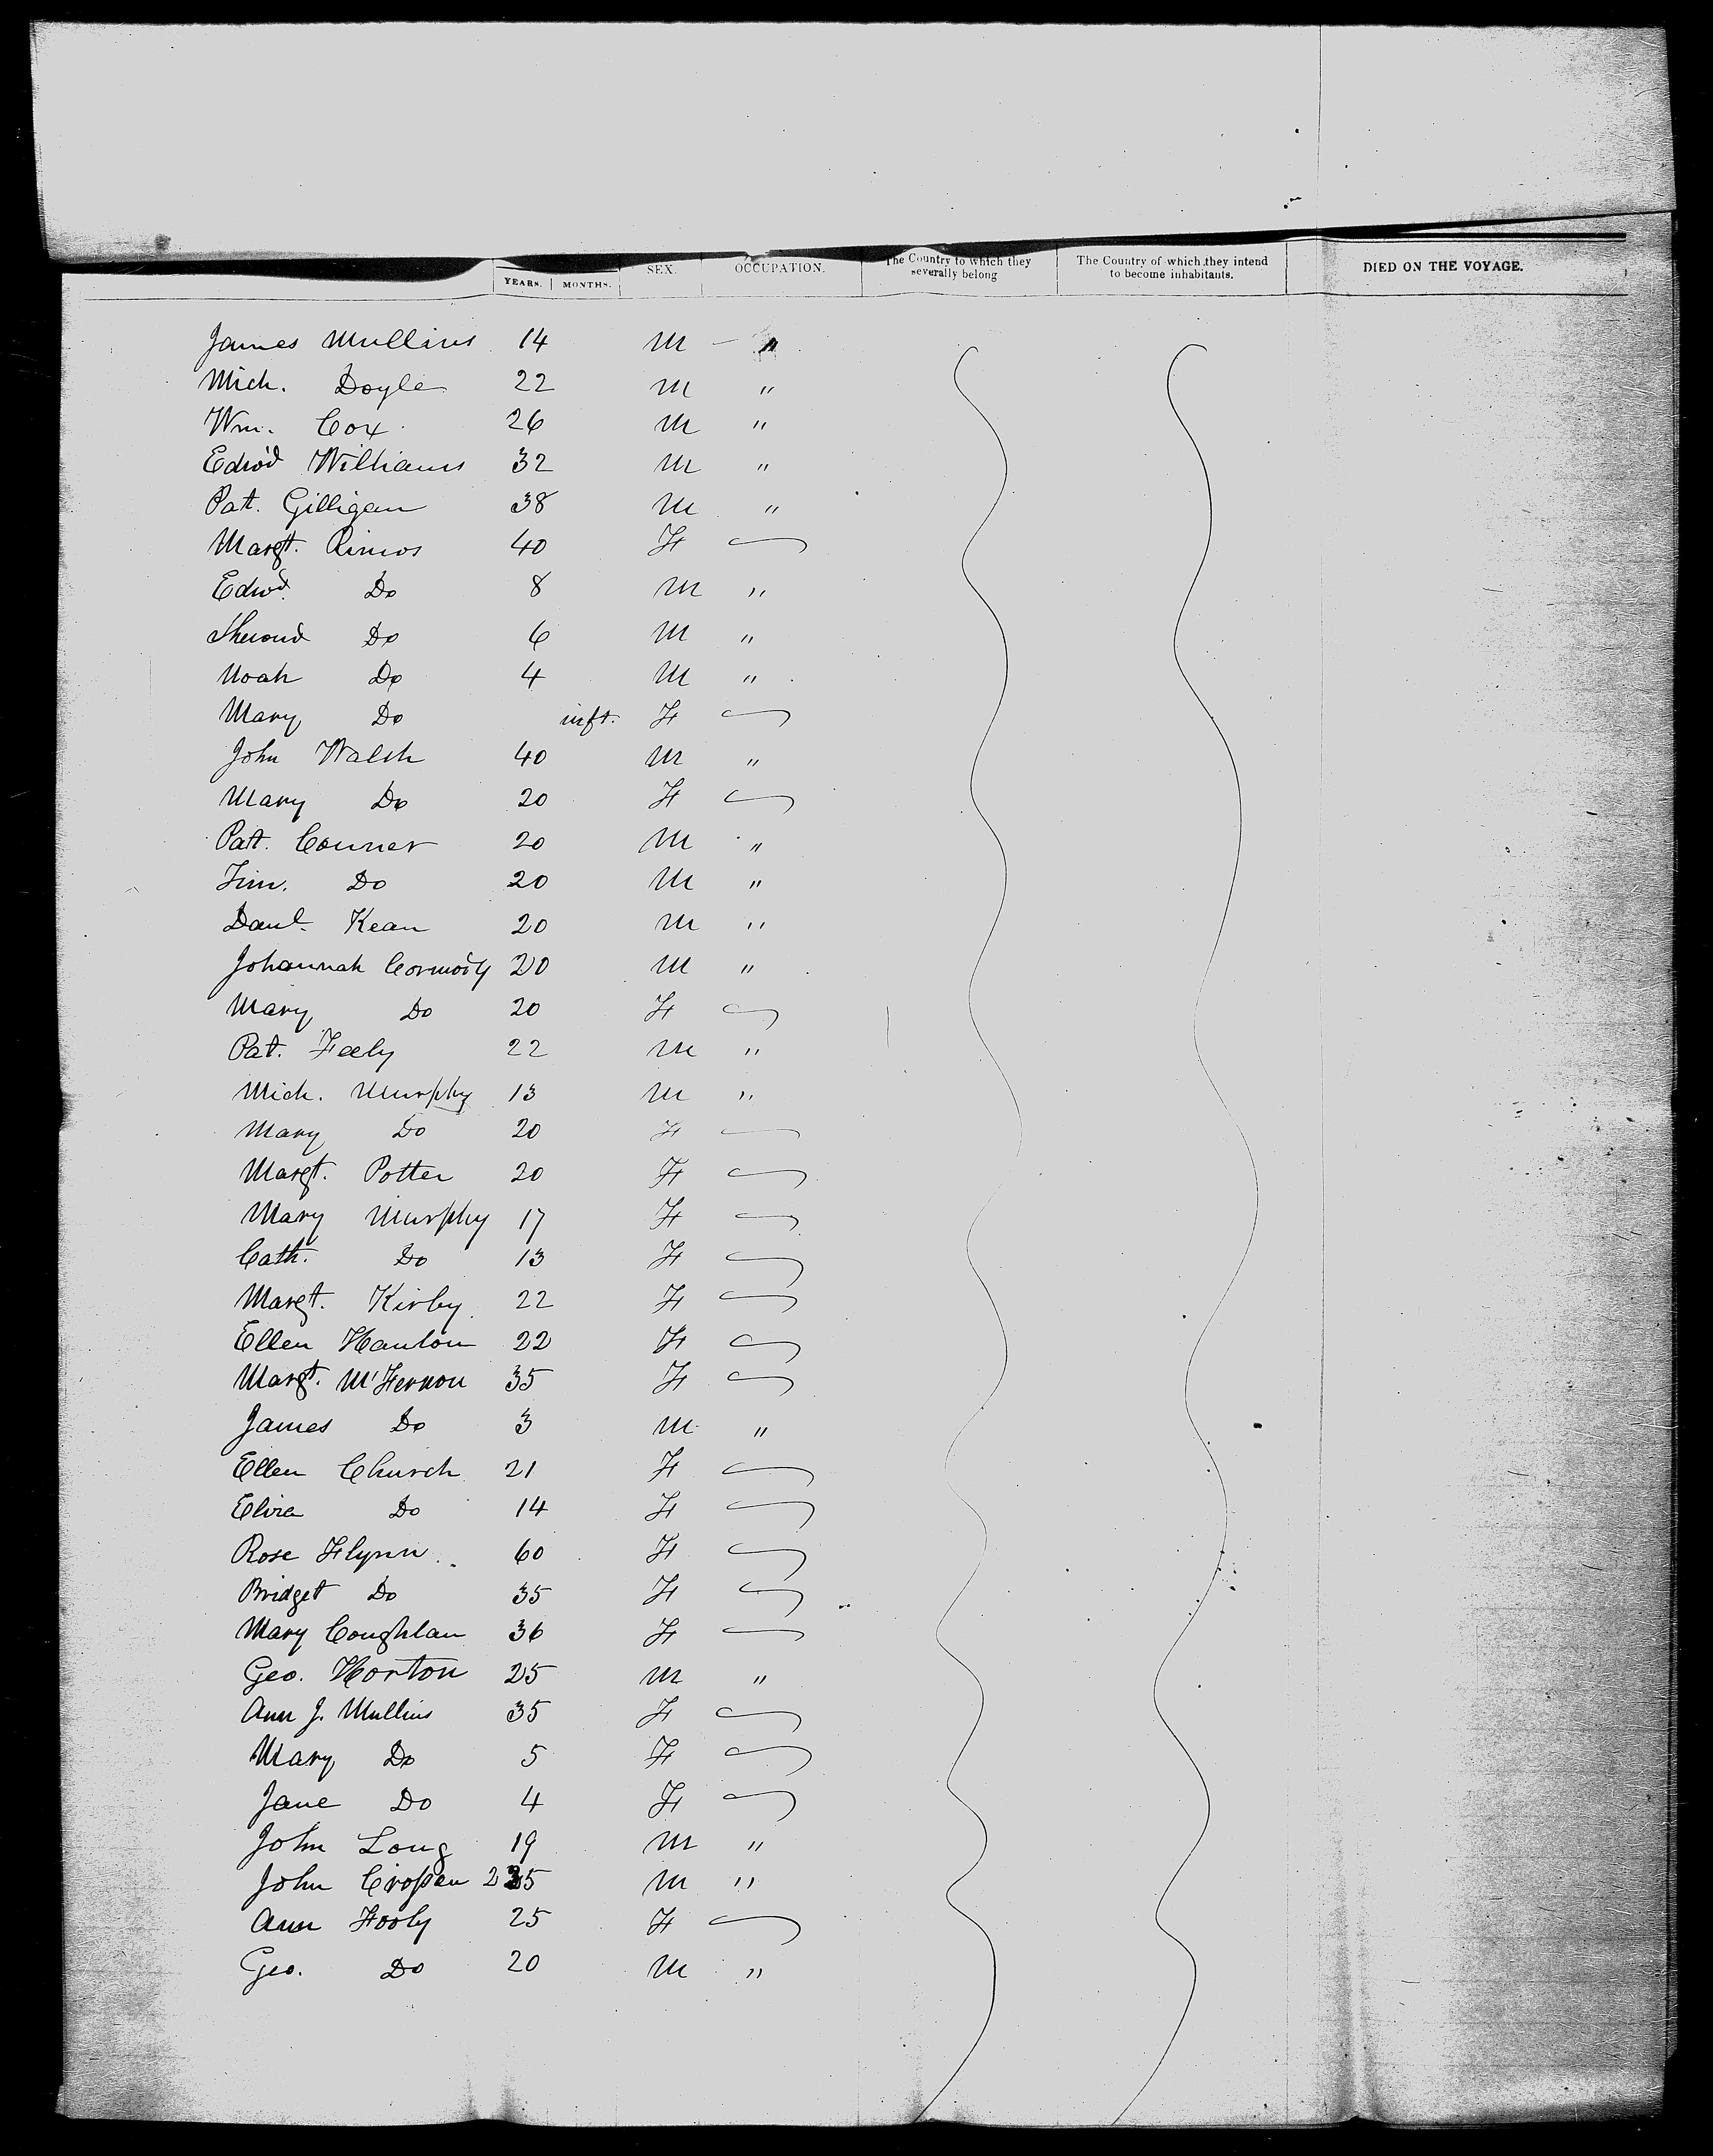 YEARS. MONTHS. SEX. OCCUPATION. The Country to which they severally belong The Country of which they intend to become inhabitants. DIED ON THE VOYAGE.
James Mullins 14 M - "
Mich. Doyle 22 M "
Wm. Cox 26 M "
Edwd Williams 32 M "
Patt. Gilligan 38 M "
Margt. Rimos 40 F
Edwd. Do 8 M "
Do 6 M "
Noah Do 4 M "
Mary Do inft. F
John Walsh 40 M "
Mary Do 20 F
Patt. Conner 20 M "
Tim. Do 20 M "
Danl. Kean 20 M "
Johannah Cormody 20 M "
Mary Do 20 F
Pat. Feely 22 M "
Mich. Murphy 13 M "
Mary Do 20 F
Margt. Potter 20 F
Mary Murphy 17 F
Cath. Do 13 F
Margt. Kirby 22 F
Ellen Hanlon 22 F
Margt. M'Fernon 35 F
James Do 3 M "
Ellen Church 21 F
Eliza Do 14 F
Rose Flynn 60 F
Bridget Do 35 F
Mary Coughlan 36 F
Geo. Horton 25 M "
Ann J. Mullins 35 F
Mary Do 5 F
Jane Do 4 F
John Long 19 M "
John Crossen M "
Ann Fooly 25 F
Geo. Do 20 M "